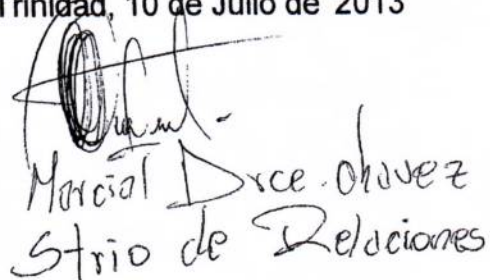 Trinidad, 10 de Julio de 2013
Marcial Drce. chavez
Strio de Relaciones